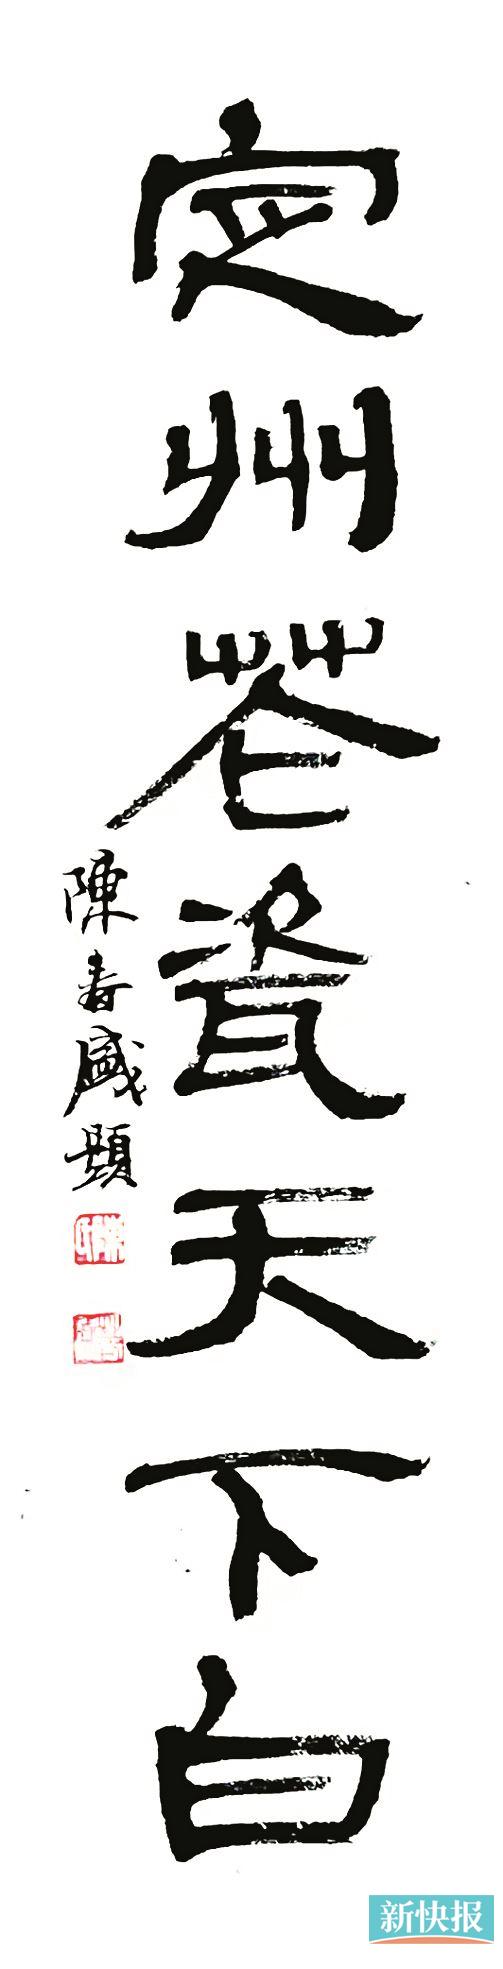 定州花瓷天下白
陳春盛題
新快报